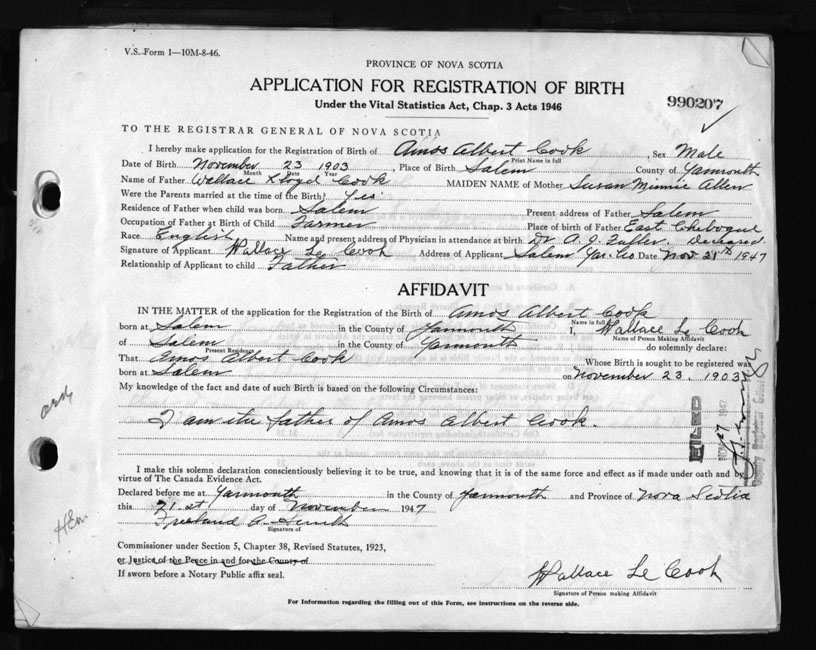 V.S. Form 1—10M-8-46.
PROVINCE OF NOVA SCOTIA
APPLICATION FOR REGISTRATION OF BIRTH
Under the Vital Statistics Act, Chap. 3 Acts 1946
990207
TO THE REGISTRAR GENERAL OF NOVA SCOTIA
I hereby make application for the Registration of Birth of Amos Albert Cook, Sex Male
Print Name in full
Date of Birth November 23 1903, Place of Birth Salem County of Yarmouth
Month Date Year
Name of Father Wallace Lloyd Cook MAIDEN NAME of Mother Susan Minnie Allen
Were the Parents married at the time of the Birth? Yes
Residence of Father when child was born Salem Present address of Father Salem
Occupation of Father at Birth of Child Farmer Place of birth of Father East Chebogue
Race English Name and present address of Physician in attendance at birth Dr. A. J. Fuller. Deceased.
Signature of Applicant Wallace L Cook Address of Applicant Salem Yar. Co Date Nov 21st 1947
Relationship of Applicant to child Father
AFFIDAVIT
IN THE MATTER of the application for the Registration of the Birth of Amos Albert Cook
Name in full
born at Salem in the County of Yarmouth I, Wallace L Cook
Name of Person Making Affidavit
of Salem in the County of Yarmouth do solemnly declare:
Present Residence
That Amos Albert Cook Whose Birth is sought to be registered was
born at Salem on November 23, 1903
My knowledge of the fact and date of such Birth is based on the following Circumstances:
I am the father of Amos Albert Cook.
FILED
NOV 27 1947
I make this solemn declaration conscientiously believing it to be true, and knowing that it is of the same force and effect as if made under oath and by
virtue of The Canada Evidence Act.
Declared before me at Yarmouth in the County of Yarmouth and Province of Nova Scotia
this 21st day of November 1947
Signature of
Commissioner under Section 5, Chapter 38, Revised Statutes, 1923,
or Justice of the Peace in and for the County of
If sworn before a Notary Public affix seal.
Wallace L Cook
Signature of Person making Affidavit
For Information regarding the filling out of this Form, see instructions on the reverse side.